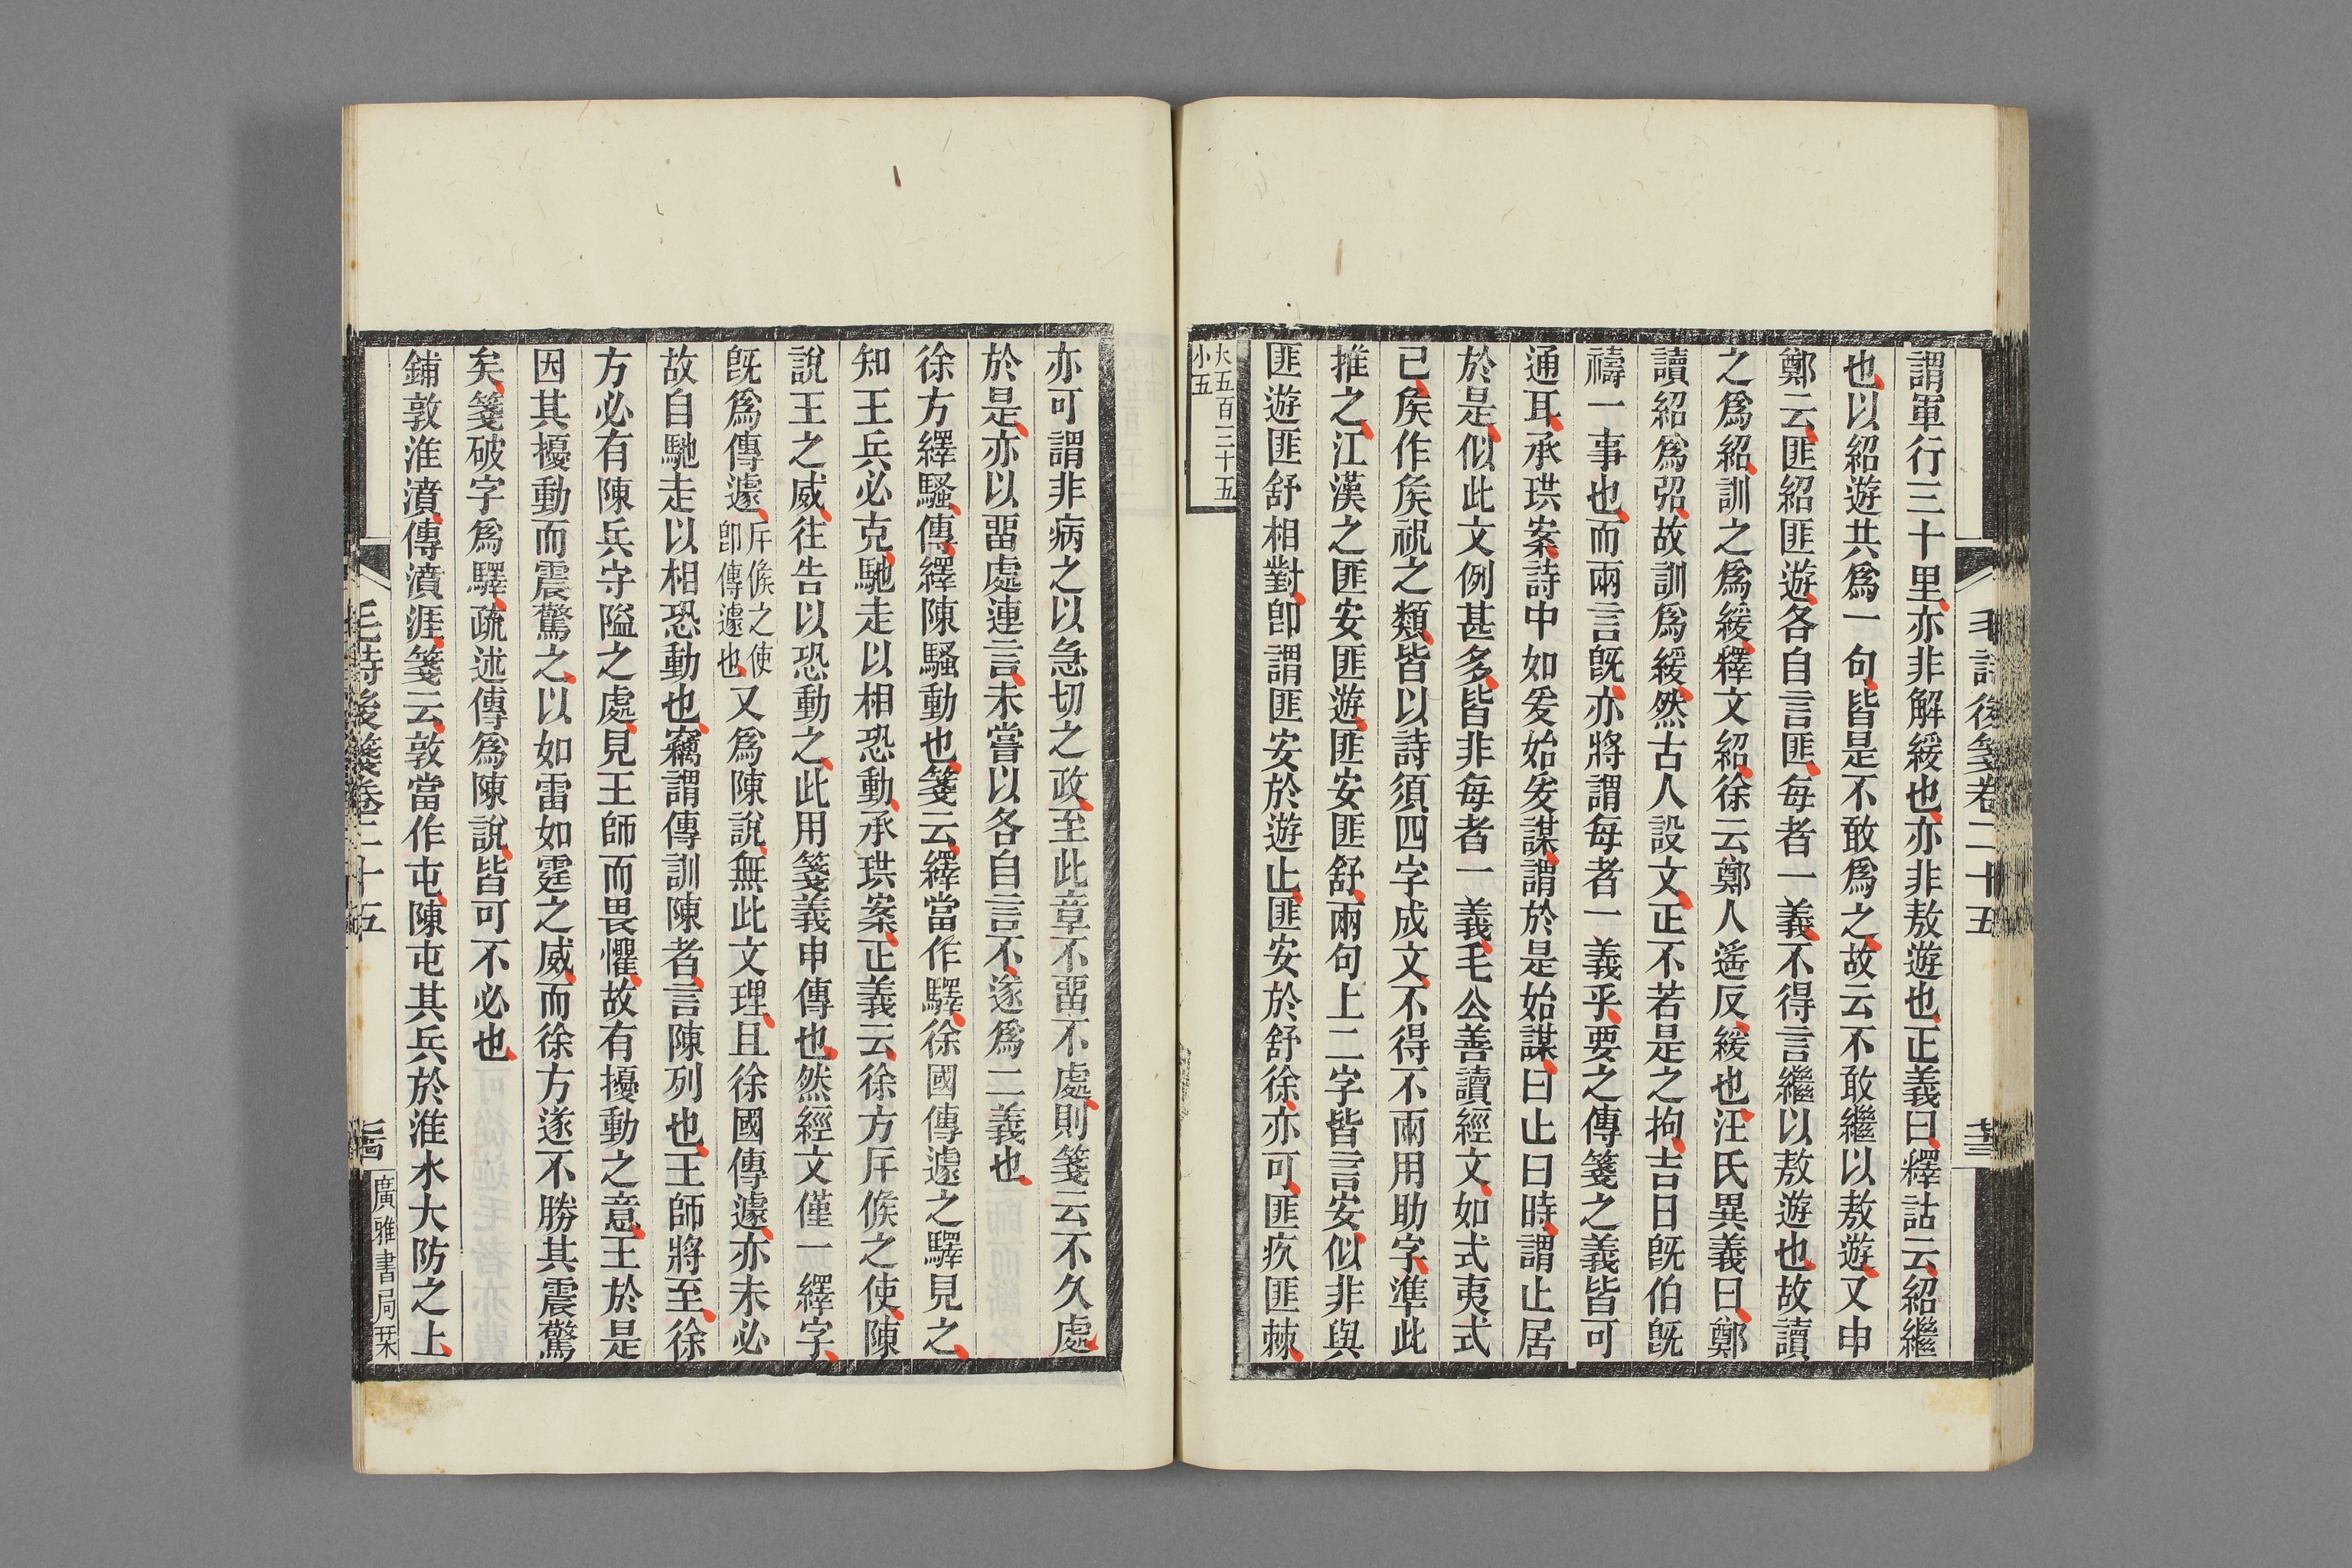 毛詩後箋卷二十五
謂軍行三十里亦非解緩也亦非敖遊也正義曰釋詁云紹繼
也以紹遊共爲一句皆是不敢爲之故云不敢繼以敖遊又申
鄭云匪紹匪遊各自言匪每者一義不得言繼以敖遊也故讀
之爲紹訓之爲緩釋文紹徐云鄭人遥反緩也汪氏異義曰鄭
讀紹爲弨故訓爲緩然古人設文正不若是之拘吉日旣伯旣
禱一事也而兩言旣亦將謂每者一義乎要之傳箋之義皆可
通耳承珙案詩中如爰始爰謀謂於是始謀曰止曰時謂止居
於是似此文例甚多皆非每者一義毛公善讀經文如式夷式
已矦作矦祝之類皆以詩須四字成文不得不兩用助字準此
推之江漢之匪安匪遊匪安匪舒兩句上二字皆言安似非與
匪遊匪舒相對卽謂匪安於遊止匪安於舒徐亦可匪疚匪棘
大五百三十五
小五
亦可謂非病之以急切之政至此章不畱不處則箋云不久處
於是亦以畱處連言未嘗以各自言不遂爲二義也
徐方繹騷傳繹陳騷動也箋云繹當作驛徐國傳遽之驛見之
知王兵必克馳走以相恐動承珙案正義云徐方斥候之使陳
說王之威往告以恐動之此用箋義申傳也然經文僅一繹字
旣爲傳遽斥候之使卽傳遽也又爲陳說無此文理且徐國傳遽亦未必
故自馳走以相恐動也竊謂傳訓陳者言陳列也王師將至徐
方必有陳兵守隘之處見王師而畏懼故有擾動之意王於是
因其擾動而震驚之以如雷如霆之威而徐方遂不勝其震驚
矣箋破字爲驛疏述傳爲陳說皆可不必也
鋪敦淮濆傳濆涯箋云敦當作屯陳屯其兵於淮水大防之上
毛詩後箋卷二十五
廣雅書局栞